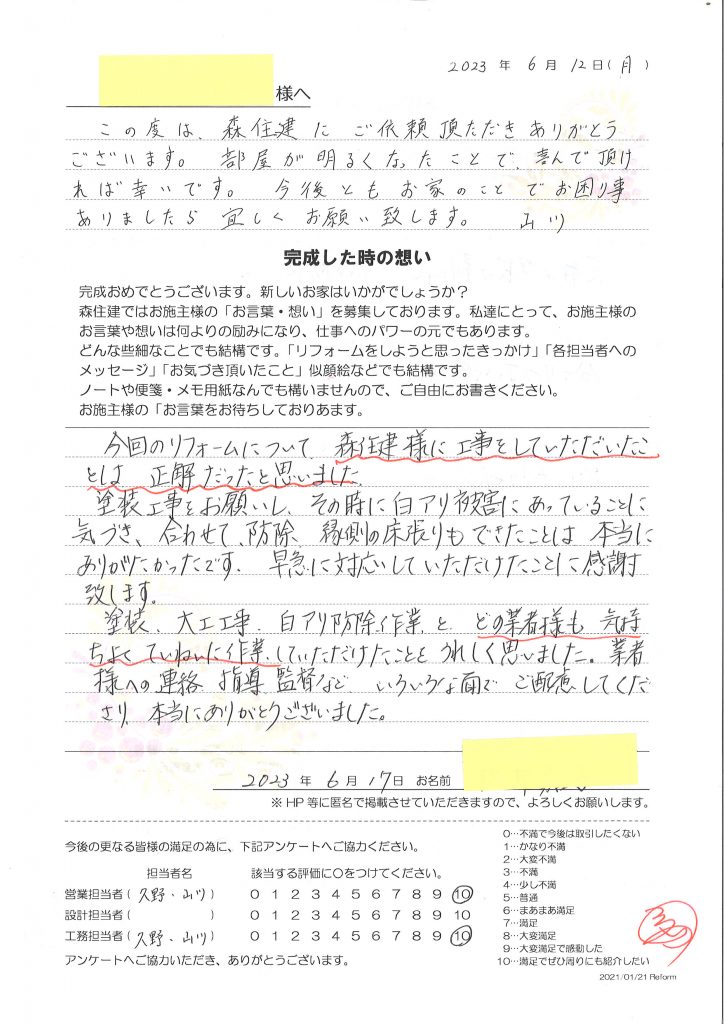 2023 年 6 月 12 日(月)
様へ
この度は、森住建に ご依頼頂ただき ありがとう
ございます。 部屋が明るくなったことで、喜んで頂け
れば幸いです。 今後とも お家のことで お困り事
ありましたら 宜しく お願い致します。 山川
完成した時の想い
完成おめでとうございます。新しいお家はいかがでしょうか?
森住建ではお施主様の「お言葉・想い」を募集しております。私達にとって、お施主様の
お言葉や想いは何よりの励みになり、仕事へのパワーの元でもあります。
どんな些細なことでも結構です。「リフォームをしようと思ったきっかけ」「各担当者への
メッセージ」「お気づき頂いたこと」似顔絵などでも結構です。
ノートや便箋・メモ用紙なんでも構いませんので、ご自由にお書きください。
お施主様の「お言葉をお待ちしておりあます。
今回のリフォームについて、森住建様に工事をしていただいたこ
とは 正解だったと思いました。
塗装工事をお願いし、その時に白アリ被害にあっていることに
気づき、合わせて、防除 縁側の床張りも できたことは 本当に
ありがたかったです。 早急に対応していただけたことに感謝
致します。
塗装、大工工事、白アリ防除作業、と、どの業者様も 気持
ちよくていねいに作業していただけたことを うれしく思いました。業者
様への連絡 指導 監督など、いろいろな面で ご配慮してくだ
さり、本当にありがとうございました。
2023 年 6 月 17日 お名前
※HP等に匿名で掲載させていただきますので、よろしくお願いします。
今後の更なる皆様の満足の為に、下記アンケートへご協力ください。
担当者名 該当する評価に〇をつけてください。
営業担当者( 久野・山川 ) 0 1 2 3 4 5 6 7 8 9 10
設計担当者( ) 0 1 2 3 4 5 6 7 8 9 10
工務担当者( 久野・山川 ) 0 1 2 3 4 5 6 7 8 9 10
アンケートへご協力いただき、ありがとうございます。
0…不満で今後は取引したくない
1…かなり不満
2…大変不満
3…不満
4…少し不満
5…普通
6…まあまあ満足
7…満足
8…大変満足
9…大変満足で感動した
10…満足でぜひ周りにも紹介したい
2021/01/21 Reform